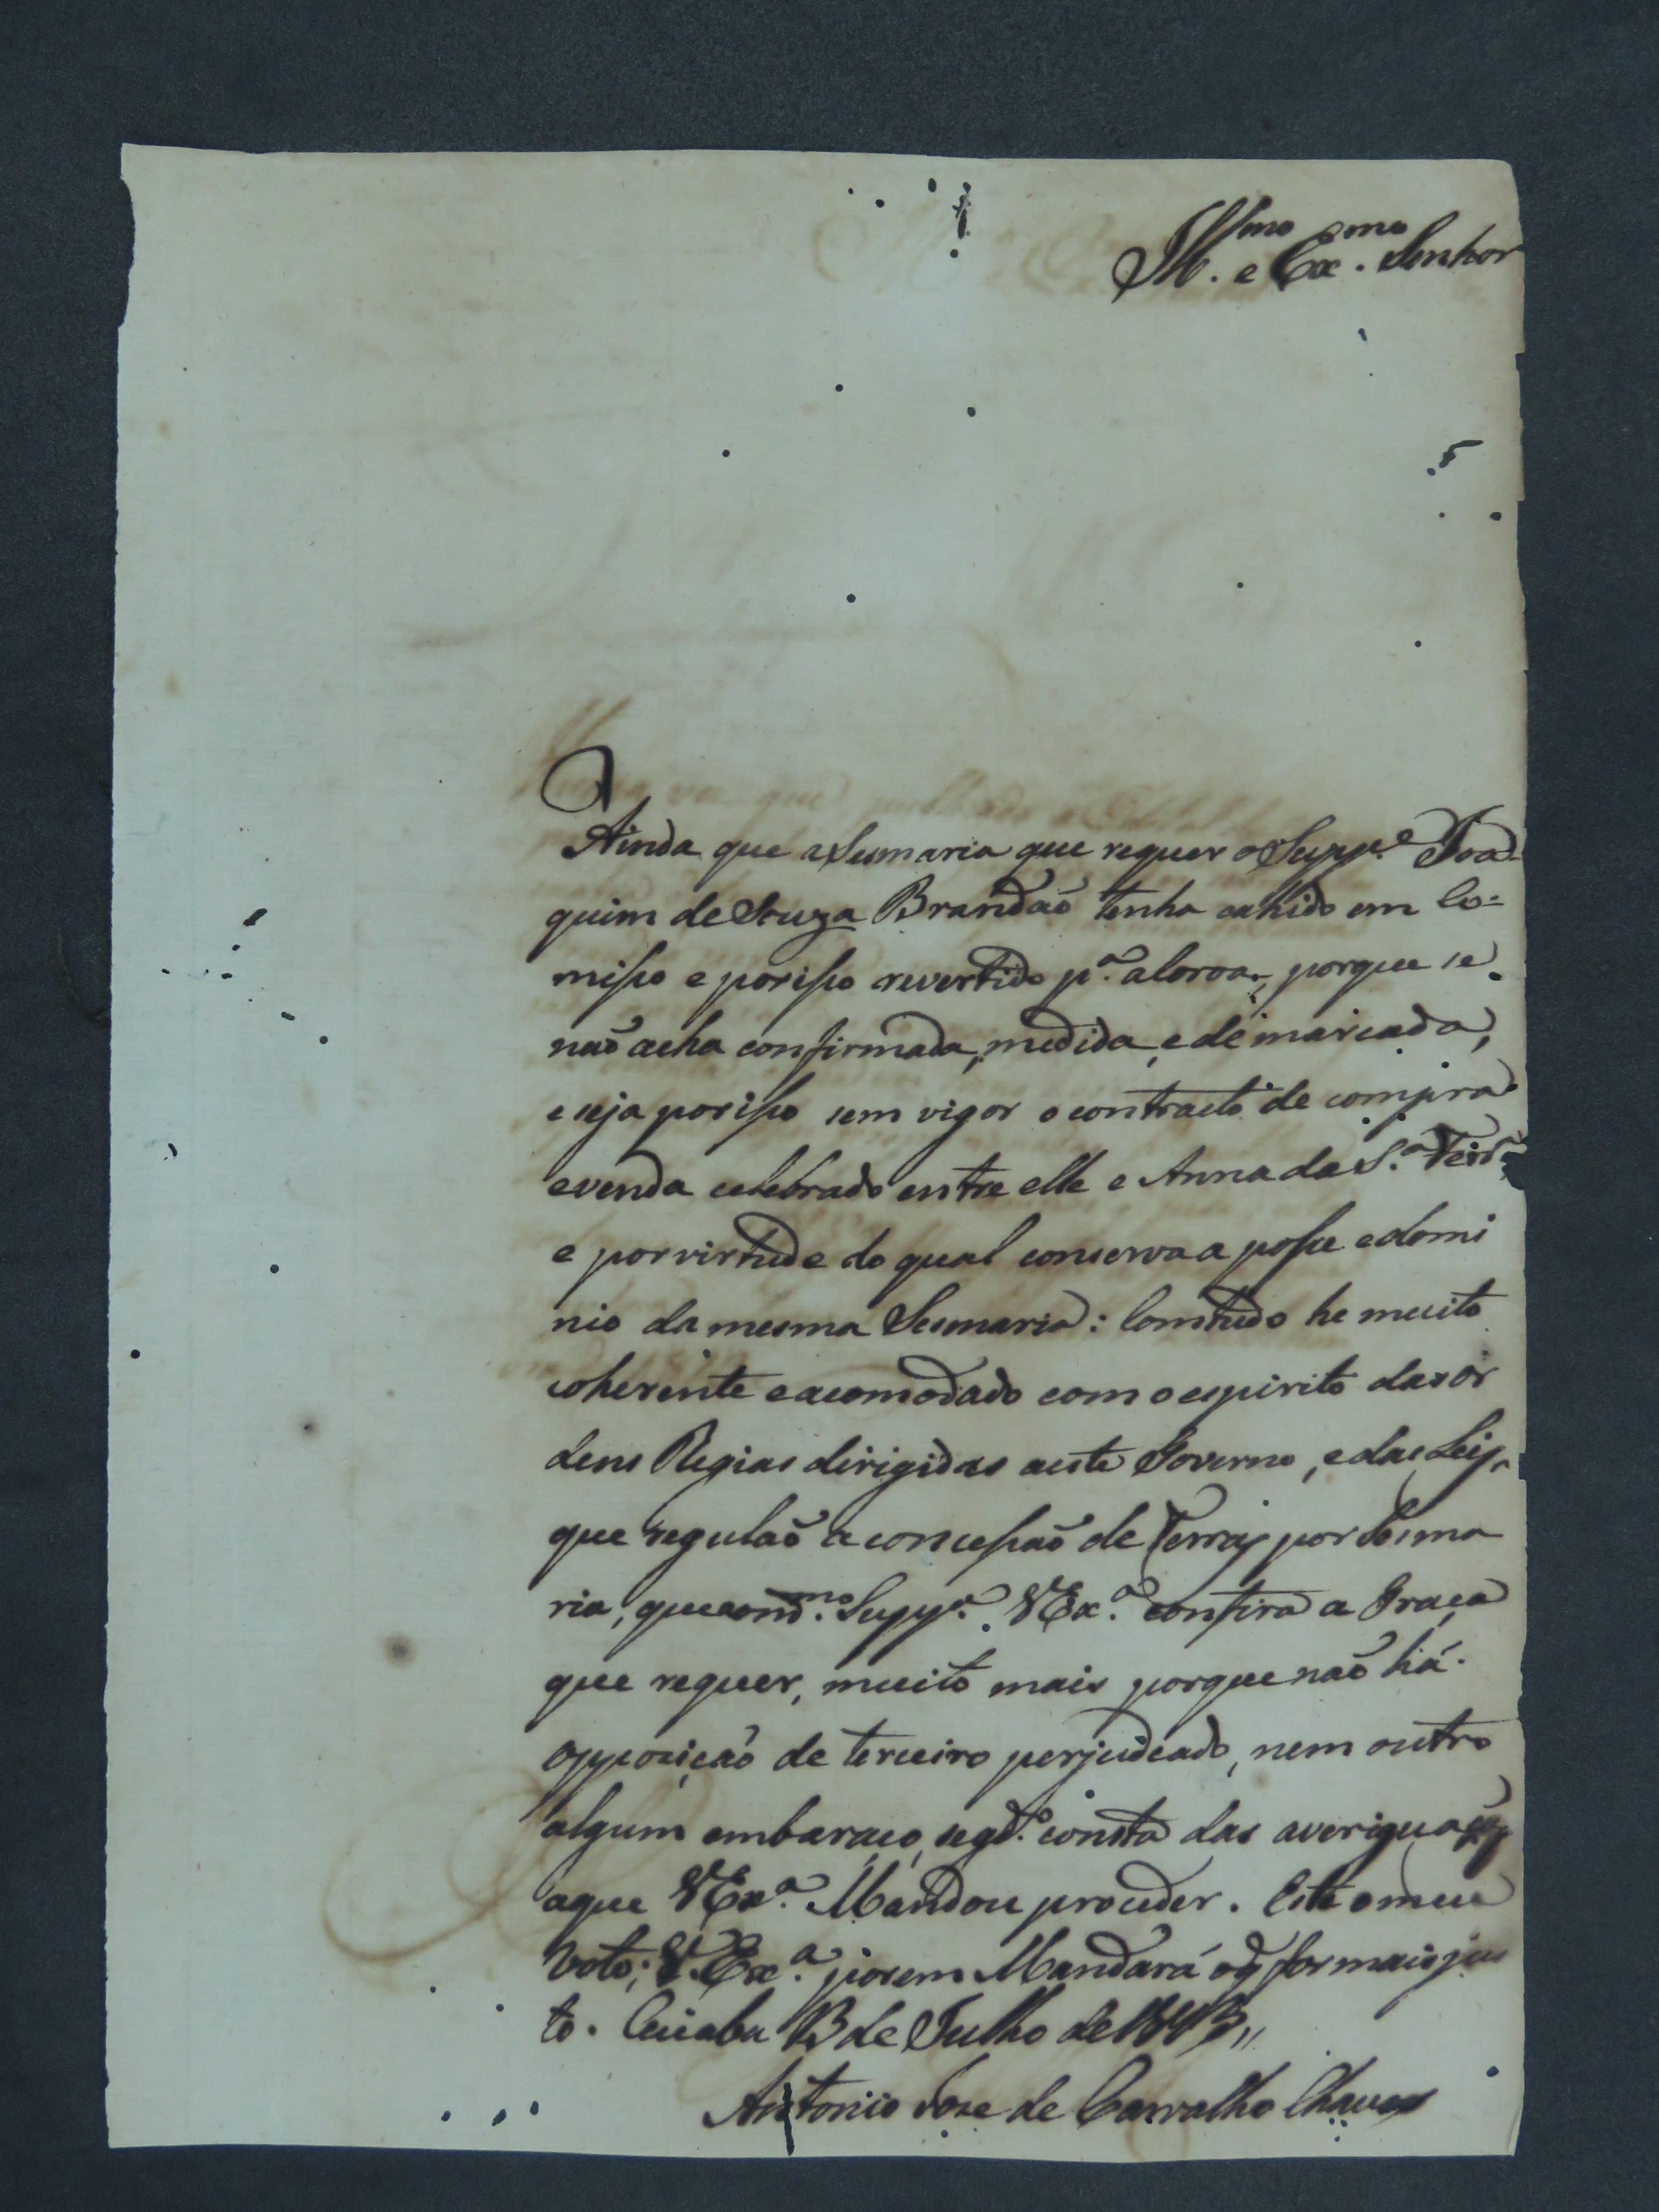 Ill.mo e Ex.mo Senhor
Ainda que a Sesmaria que requer o Supp.e Joa-
quim de Souza Brandaõ tenha cahido em Co=
misso e porisso revertido p.a a Coroa, porque se
naõ acha confirmada, medida, e demarcada,
e seja porisso sem vigor o contracto de compra
e venda celebrado entre elle e Anna da S.a
e por virtude do qual conserva a posse e domi
nio da mesma Sesmaria: Comtudo he muito
coherente e acomodado com o espirito das or
dens Regias dirigidas a este Governo, e das Leis,
que regulaõ a concessaõ de Terras por Sesma
ria, que ao md.mo Supp.e V Ex.a confira a Graça
que requer, muito mais porque naõ há
opposiçaõ de terceiro perjudicado, nem outro
algum embaraço, segd.o consta das averiguaçoẽs
a que V Ex.a Mandou proceder. Este o meu
voto; V. Ex.a porem Mandará o q̃ for mais jus
to. Cuiaba 13 de Julho de 1813,,
Antonio Jose de Carvalho Chaves